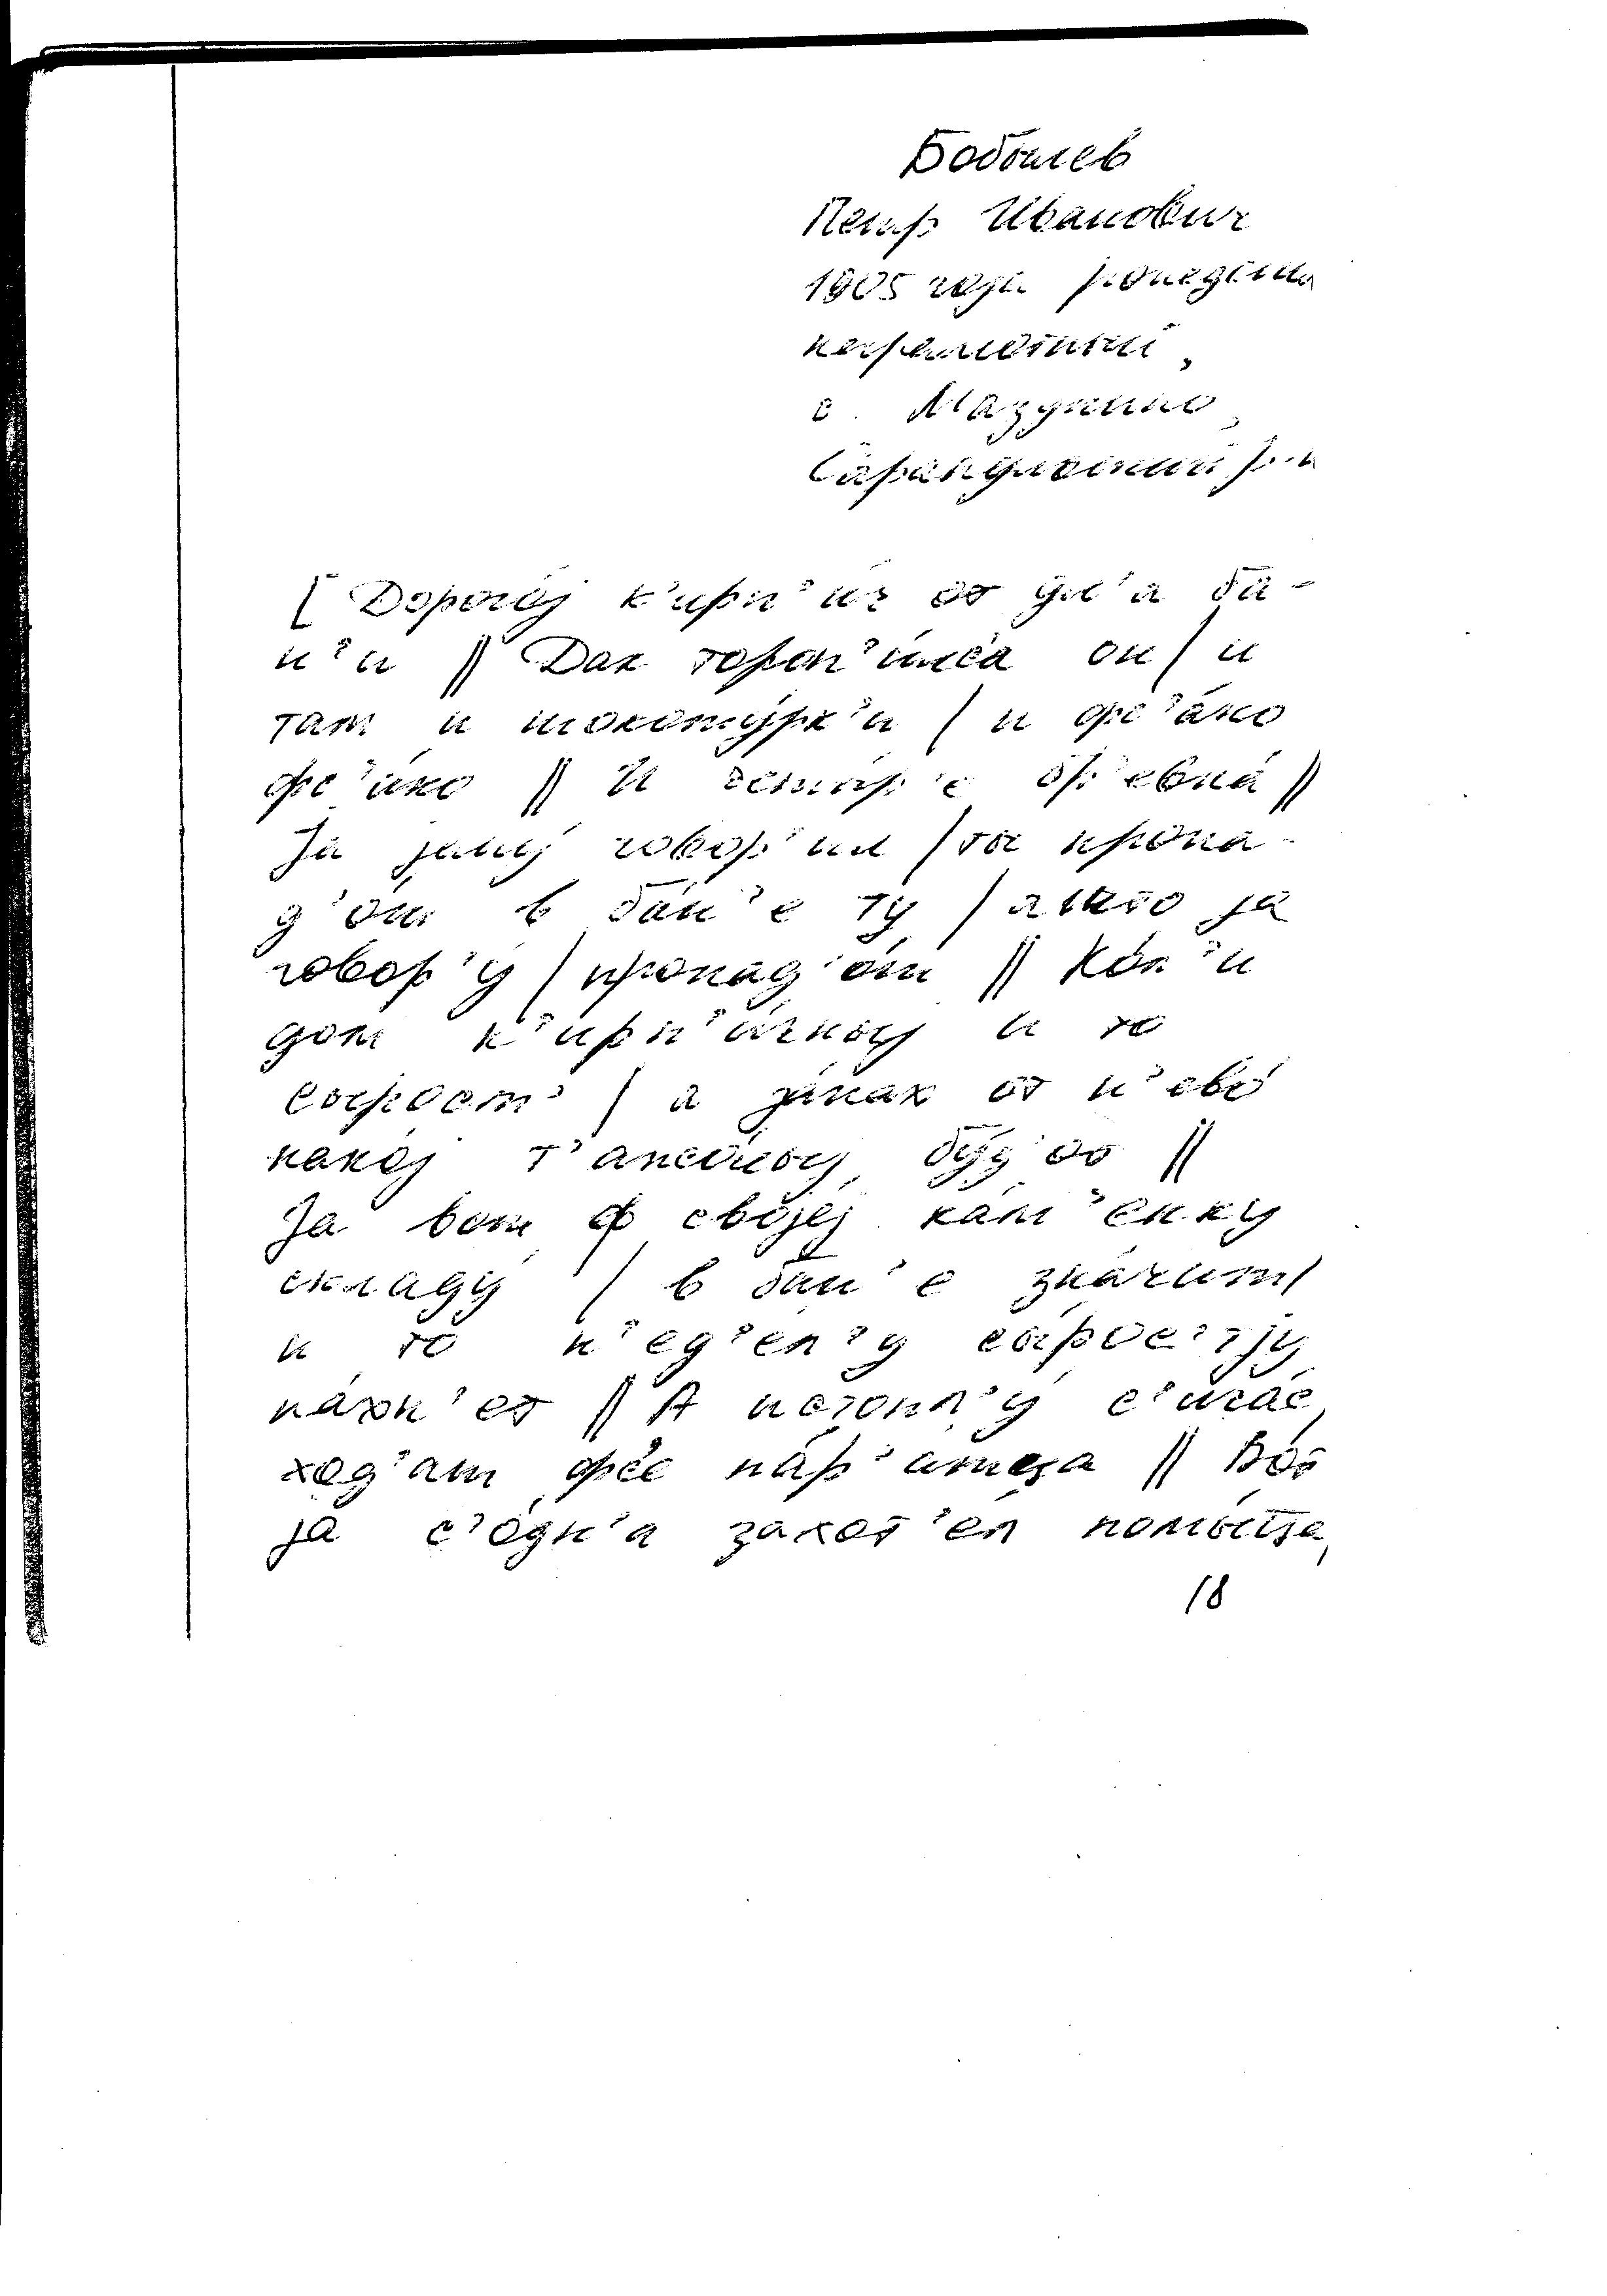 Бобылев
Петр Иванович
1905 года рождения
неграмотный,
с. Мазунино,
Сарапульский р-н
[Дорогój к'ирп'ич от дл'а ба-
н'и || Дак тороп'ился он | и
там и штокату́рк'и | и фс'а́ко
фс'а́ко || И четы́р'е бр'евна́ ||
Jа jему́ говор'ил | ты пропа-
д'о́ш в ба́н'е ту | а што jа
говор'у́ | пропад'о́т ||
дом к'ирп'и́чноj и то
сырост' | а за́пах от н'ево́
како́j т'ажо́лоj бу́д'от ||
Jа вот ф своjе́j ка́м'енку
складу́ | в ба́н'е зна́чит |
и то н'ед'е́л'у сы́рос'т'jу
па́хн'ет || А истопл'у́ с'ича́с
ход'ат фс'е па́р'атца || Вот
jа с'о́дн'а захот'е́л помы́тца,
18